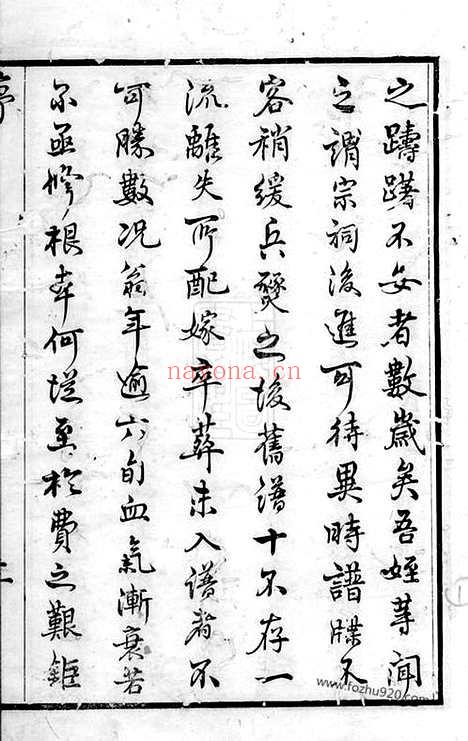 之躊躇不安者數歲矣吾姪等聞
之謂宗祠後進可待異時譜牒不
容稍緩兵燹之後舊譜十不存一
流離失所配嫁卒葬未入譜者不
可勝數況翁年逾六旬血氣漸衰若
不亟修根幸何從至於費之艱鉅
nayona.cn
www.rozhu920.com